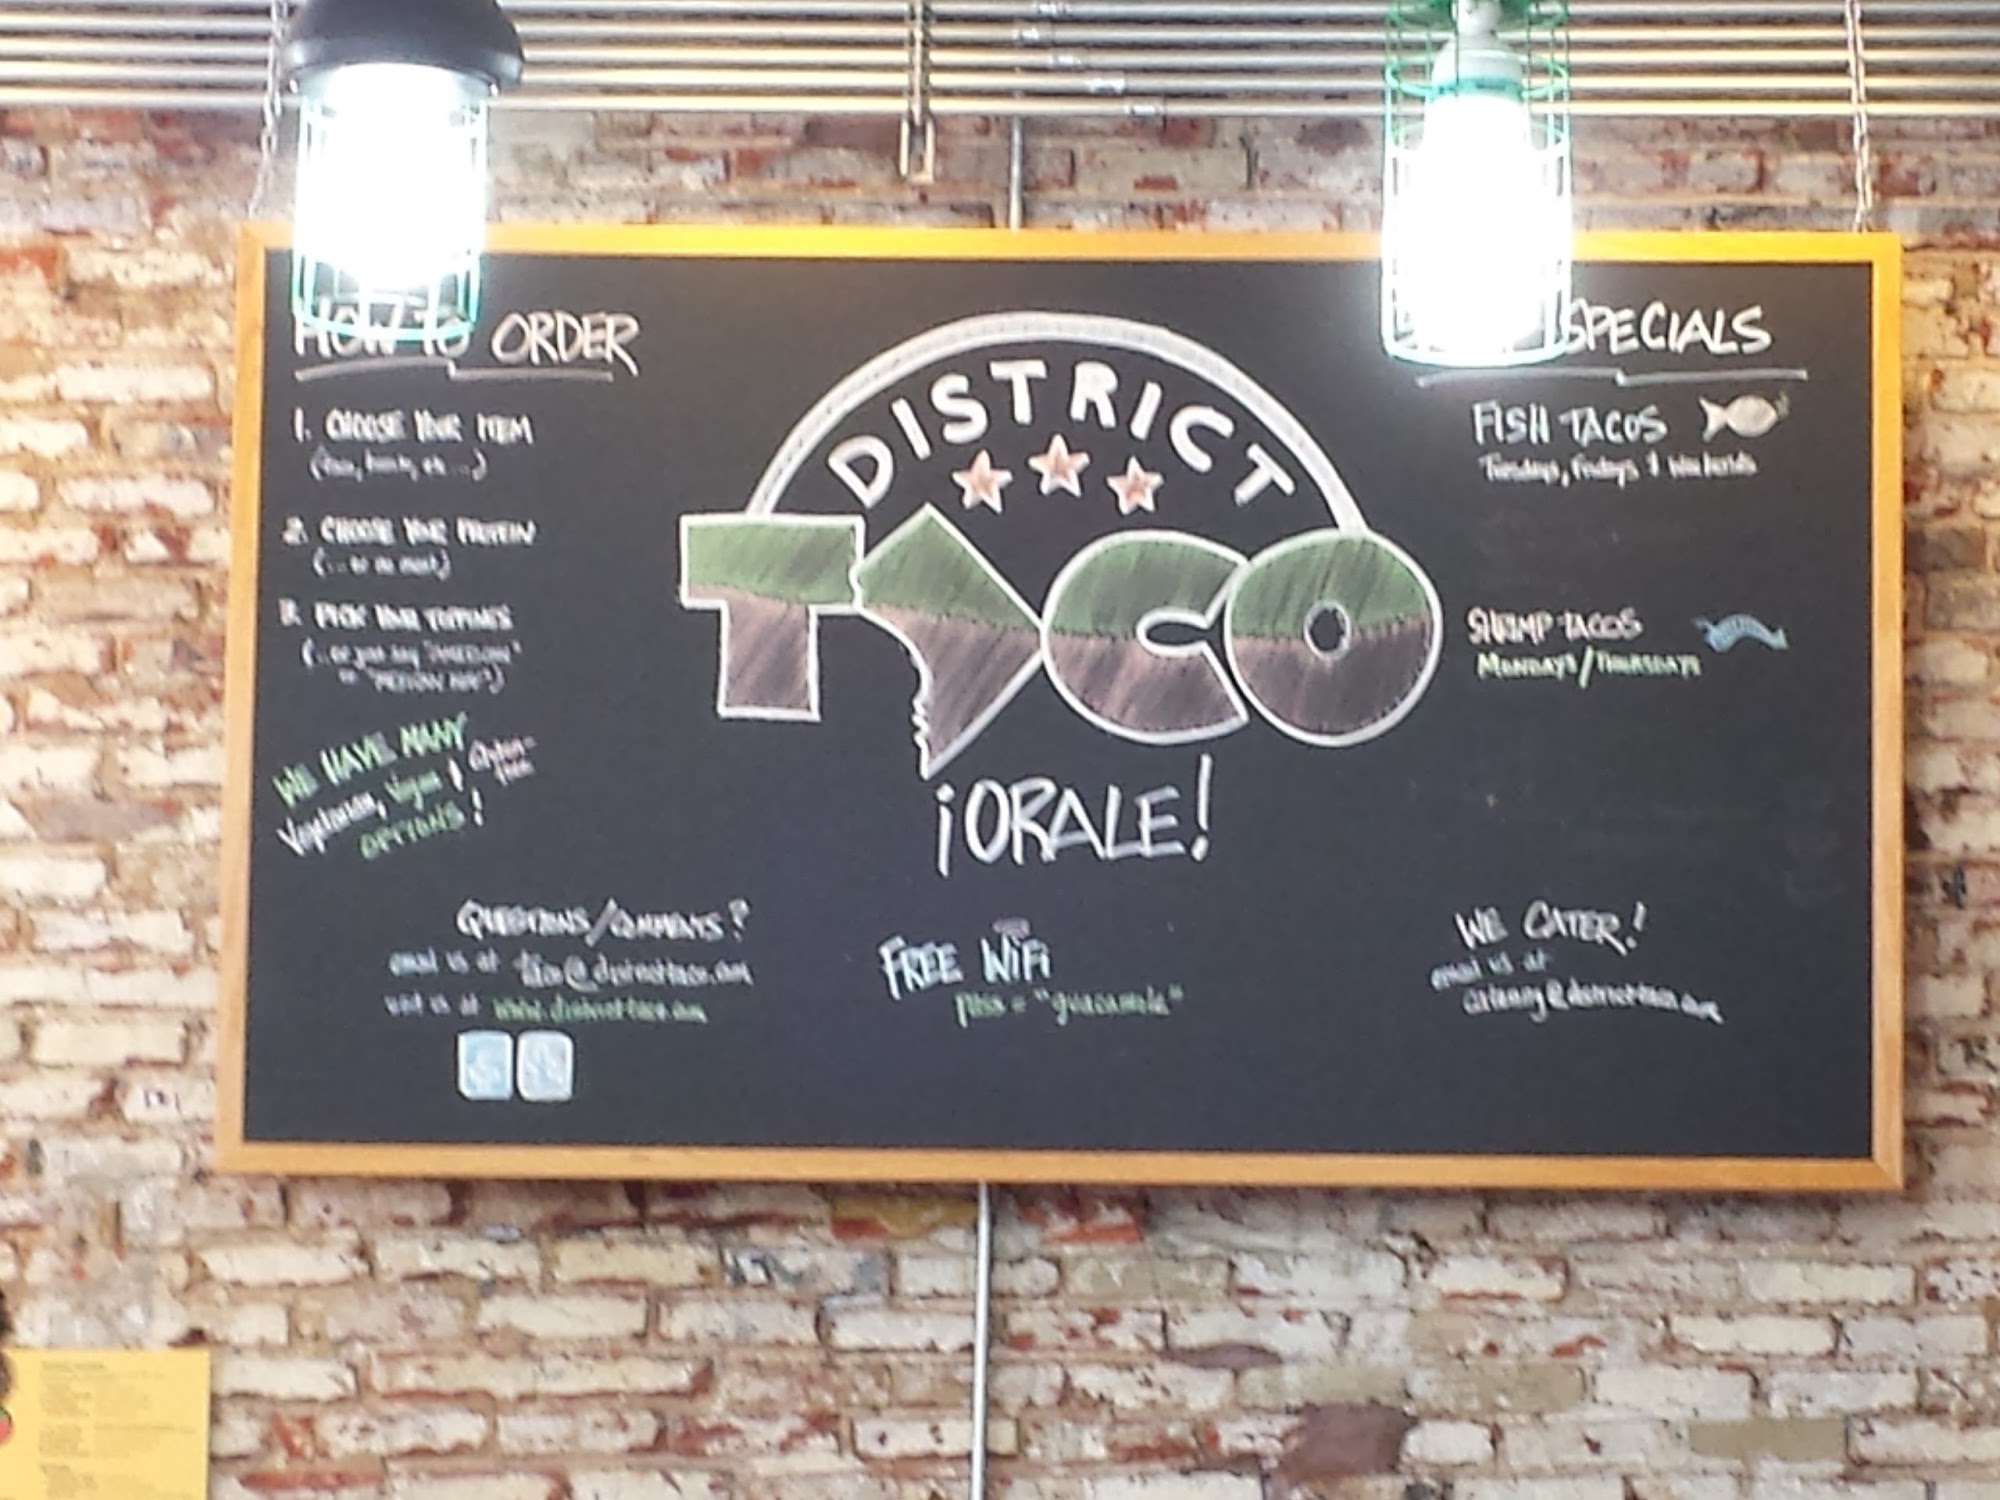 HOW TO ORDER
1. CHOOSE YOUR ITEM
2. CHOOSE YOUR PROTEIN
(... or no meat)
3. PICK YOUR TOPPINGS
(... or just say "AMERICAN"
or "MEXICAN WAY")
WE HAVE MANY
Vegetarian, Vegan & Gluten-
free
OPTIONS!
DISTRICT
TACO
¡ORALE!
SPECIALS
FISH TACOS
Tuesdays, Fridays & Weekends
SHRIMP TACOS
MONDAYS/THURSDAYS
QUESTIONS/COMMENTS?
email us at @districttaco.com
visit us at www.districttaco.com
FREE WiFi
pass = "guacamole"
WE CATER!
email us at
catering@districttaco.com